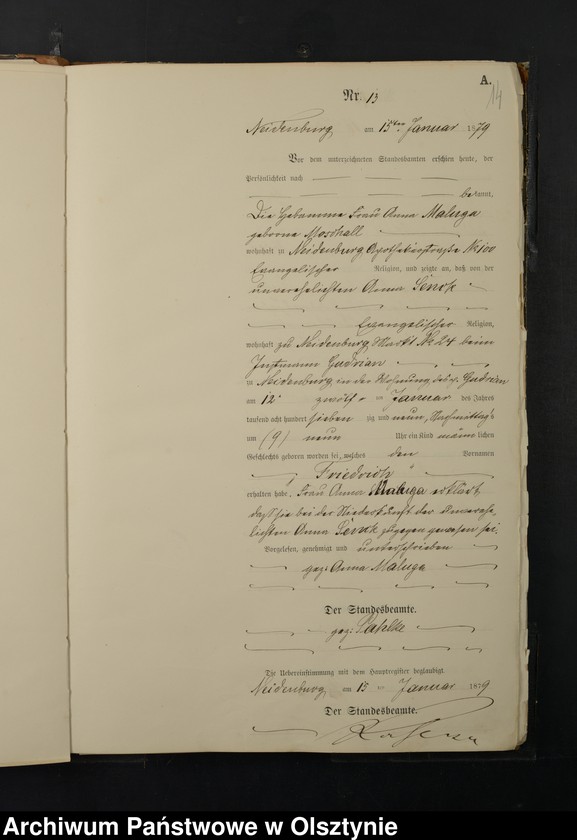 A.
14
Nr. 13
Neidenburg, am 15ten Januar 1879
Vor dem unterzeichneten Standesbeamten erschien heute, der
Persönlichkeit nach
bekannt,
Die Hebamme Frau Anna Maluga
geborne
wohnhaft in Neidenburg No 100
Evangelischer Religion, und zeigte an, daß von der
unverehelichten Anna
Evangelischer Religion,
wohnhaft zu Neidenburg, Markt No 24 beim
Gudrian
in Neidenburg in der Wohnung des Gudrian
am 12. zwölften Januar des Jahres
tausend acht hundert sieben zig und neun, Nachmittags
um (9) neun Uhr ein Kind männlichen
Geschlechts geboren worden sei, welches den Vornamen
Friedrich
erhalten habe. Frau Anna Maluga erklärt,
daß sie bei der Niederkunft der unverehe-
lichten Anna zugegen gewesen sei.
Vorgelesen, genehmigt und unterschrieben
gez: Anna Maluga
Der Standesbeamte.
gez:
Die Uebereinstimmung mit dem Hauptregister beglaubigt.
Neidenburg, am 15 Januar 1879
Der Standesbeamte.
Archiwum Państwowe w Olsztynie